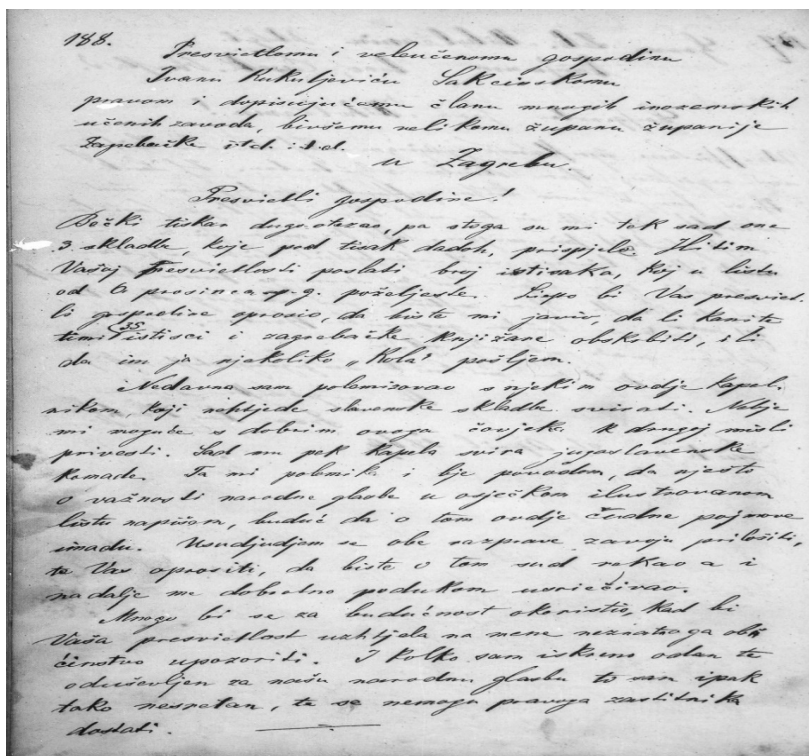 188.
Presvietlomu i veleučenomu gospodinu
Ivanu Kukuljeviću Sakcinskomu
pravom i dopisujućemu članu mnogih inozemskih
učenih zavoda, bivšemu velikomu županu županije
Zagrebačke itd. itd.
u Zagrebu.
Presvietli gospodine!
Dočki tiskar dugo otezao, pa stoga su mi tek sad one
3 skladbe, koje pod tisak dadoh, prispjele. Hitim
Vašoj Presvietlosti poslati broj istisaka, koj u listu
od 6 prosinca p. g. poželjeste. Liepo bi Vas presviet-
li gospodine oprosio, da biste mi javio, da li kanite
timi 35 istisci i zagrebačke knjižare obskrbiti, ili
da im ja njekoliko „Kola" pošljem.
Nedavno sam polemizovao s njekim ovdje kapel-
nikom, koji nehtjede slavenske skladbe svirati. Nebje
mi moguće s dobrim ovoga čovjeka k drugoj misli
privesti. Sad mu pek kapela svira jugoslavenske
komade. Ta mi polemika i bje povodom, da nješto
o važnosti narodne glasbe u osječkom ilustrovanom
listu napišam, buduć da o tom ovdje čudne pojmove
imadu. Usudjudjem se obe razprave zavoju priložiti,
te Vas oprositi, da biste o tom sud rekao a i
nadalje me dobrotno podukom usriećivao.
Mnogo bi se za budućnost okoristio, kad bi
Vaša presvietlost uzhtjela na mene neznatnoga ob-
ćinstvo upozoriti. I koliko sam iskreno odan te
oduševljen za našu narodnu glasbu to sam ipak
tako nesretan, te se nemogu pravoga zaštitnika
dostati.